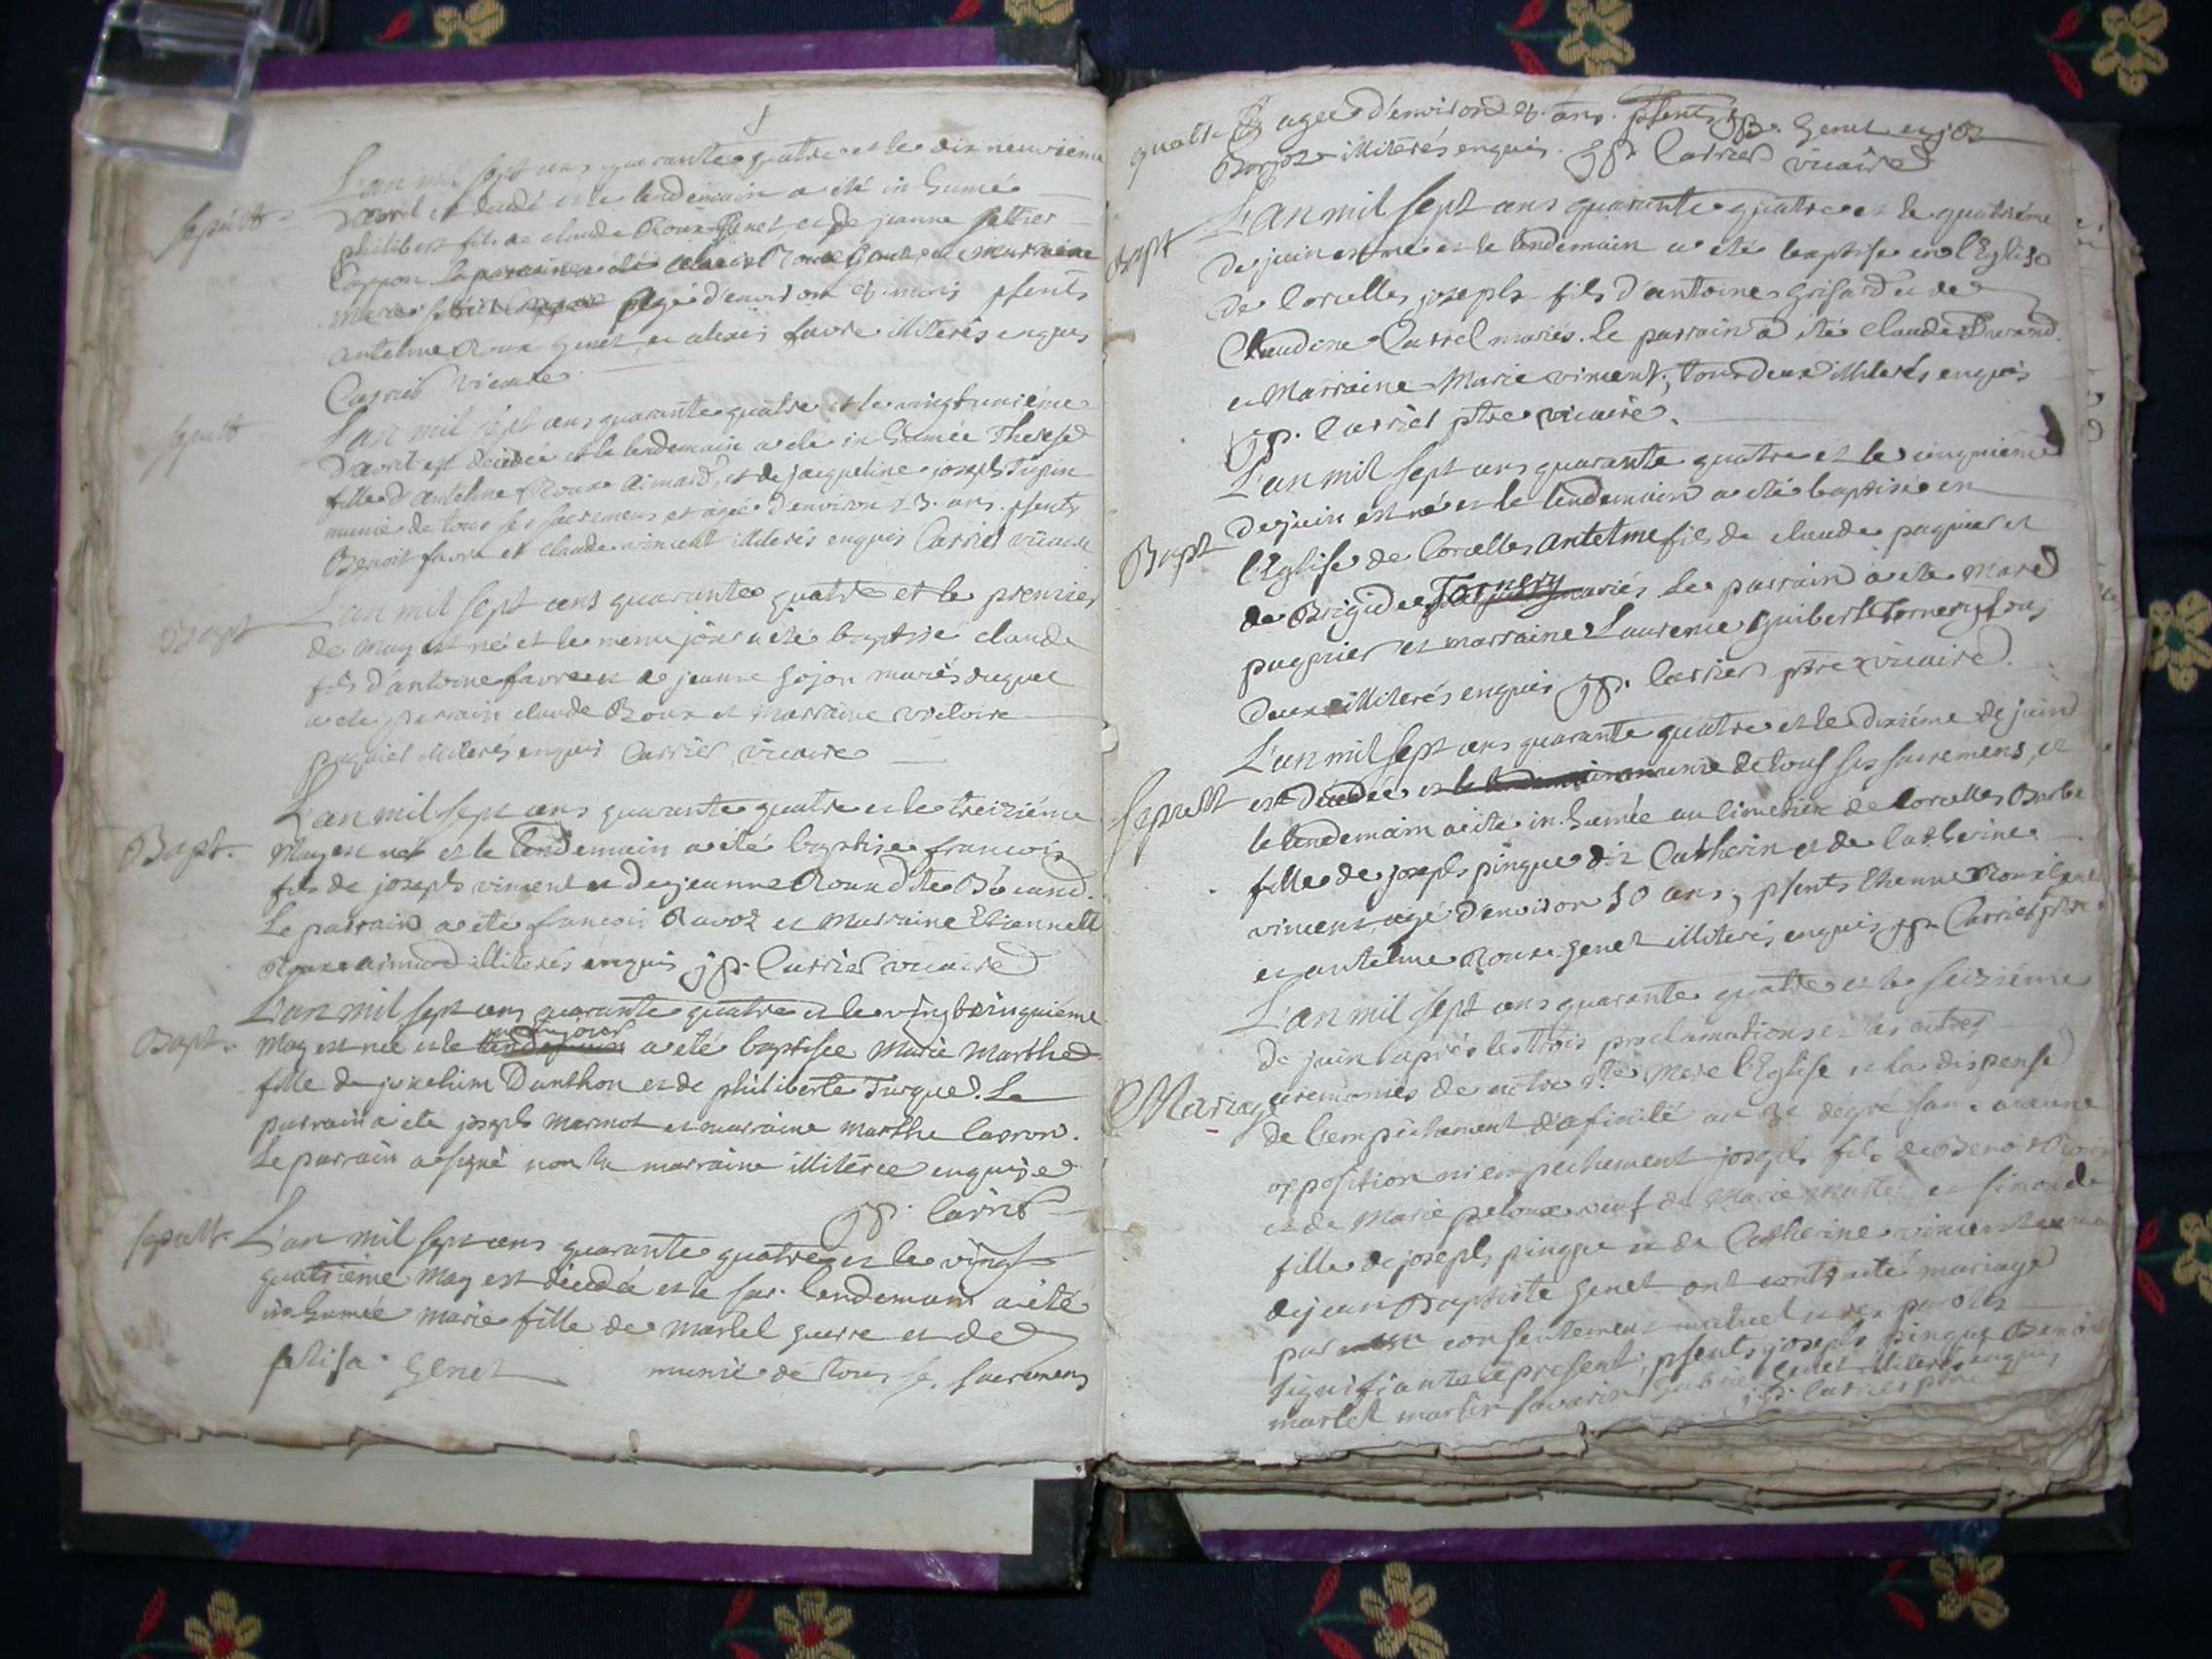 Sepult
L'an mil sept cens quarante quatre et le dix neuvieme
d'avril est decedé et le lendemain a été inhumé
philibert fils de claude Roux Genet et de jeanne
marraine
agé d'environ mois psents
antelme Roux Genet et alexis favre illiterés enquis
Carrier vicaire
Sepult
L'an mil sept cens quarante quatre et le vingt unième
d'avril est decedée et le lendemain a été inhumée Therese
fille d'antelme Roux aimard, et de jacqueline joseph Tupin
munie de tous ses sacremens et agée d'environ 23. ans. psents
Benoit favre et claude vincent illiterés enquis Carrier vicaire
Bapt
L'an mil sept cens quarante quatre et le premier
de may est né et le meme jour a été baptisé claude
fils d'antoine favre et de jeanne Gojon mariés duquel
a été parrain claude Roux et marraine victoire
illiterés enquis Carrier vicaire
Bapt.
L'an mil sept cens quarante quatre et le treizième
May est né et le lendemain a été baptisé francois
fils de joseph vincent et de jeanne Roux dite
Le parrain a été francois Ravoz et marraine Etiennette
Roux aimard illiterés enquis jp. Carrier vicaire
Bapt.
L'an mil sept cens quarante quatre et le vingt cinquième
may est née et le lendemain jour a été baptisée Marie Marthe
fille de joachim Danthon et de philiberte Turque. Le
parrain a été joseph marmot et marraine marthe Carron.
Le parrain a signé non la marraine illiterée enquise
jp. Carrier
Sepult.
L'an mil sept cens quarante quatre et le vingt
quatrieme May est decedée et le sur-lendemain a été
inhumée marie fille de martel guerre et de
Genet munie de tous ses sacremens
agée d'environ ans. psents jp. Genet et joz
illiterés enquis. jp. Carrier vicaire
Bapt
L'an mil sept cens quarante quatre et le quatrième
de juin est né et le lendemain a été baptisé en l'Eglise
de Corcelles joseph fils d'antoine Grisard et de
Claudine Carrel mariés. Le parrain a été claude
et Marraine Marie vincent; tous deux illiterés enquis
jp. Carrier ptre vicaire.
Bapt
L'an mil sept cens quarante quatre et le cinquième
de juin est né et le lendemain a été baptisé en
l'Eglise de Corcelles antelme fils de claude pagnier et
de Brigide Tornery mariés Le parrain a été Mare
pagnier et marraine Laurence Guiberte Tornery tous
deux illiterés enquis jp. Carrier ptre vicaire.
Sepult
L'an mil sept cens quarante quatre et le dixième de juin
est decedée et le lendemain munie de tous ses sacremens, et
le lendemain a été inhumée au cimetière de Corcelles
fille de joseph pingue dit Catherin et de Catherine
vincent agé d'environ 30 ans, psents Etienne Roux
et antelme Roux Genet illiterés enquis jp. Carrier ptre
Mariage
L'an mil sept cens quarante quatre et le seizième
de juin après les trois proclamations et les autres
ceremonies de notre ste Mere l'Eglise et la dispense
de l'empechement d'afinité au 3e degré sans aucune
opposition ni empechement joseph fils de Benoit Roux
et de Marie peloux veuf de Marie et simonde
fille de joseph pingue et de Catherine vincent veuve
de jean Baptiste Genet ont contracté mariage
par consentement mutuel paroles
signifiants le présent; psents joseph pingue Benoit
martel martin savarin gabriel Genet illiterés enquis
jp. Carrier ptre